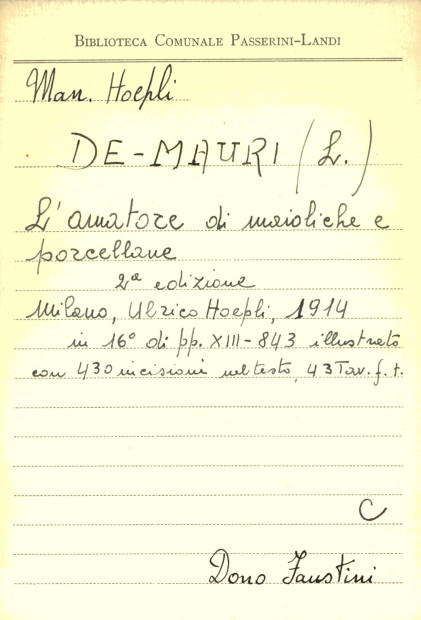 BIBLIOTECA COMUNALE PASSERINI-LANDI
Man. Hoepli
DE-MAURI (L.)
L'amatore di maioliche e
porcellane
2ª edizione
Milano, Ulrico Hoepli, 1914
in 16° di pp. XIII-843 illustrato
con 430 incisioni nel testo, 43 Tav. f. t.
C
Dono Faustini